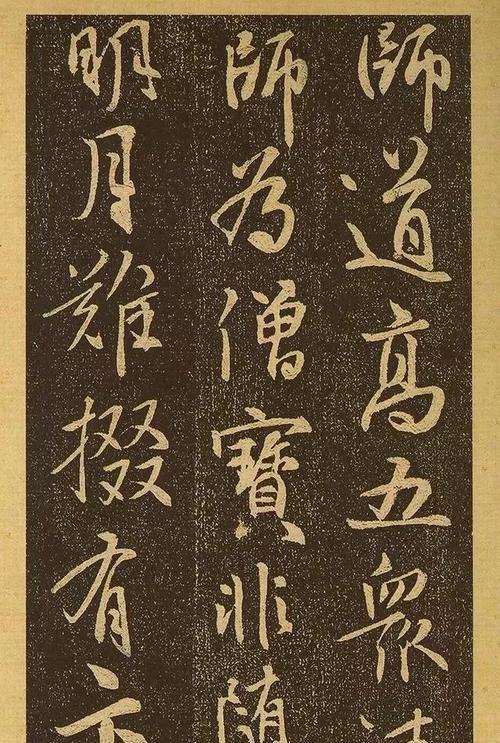 師道高五衆
師為僧寶非随
明月難掇有